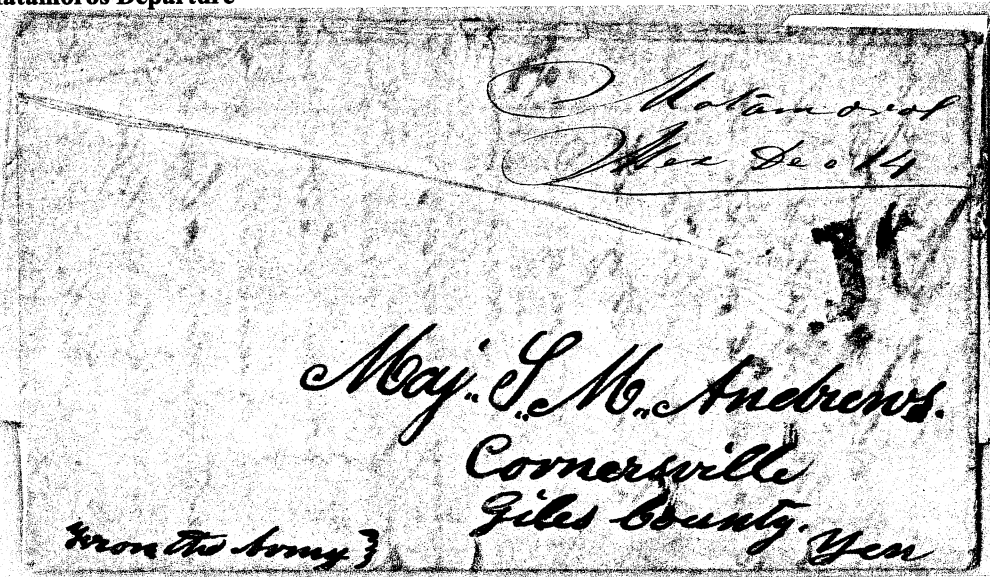 Matamoros Departure
Matamoros
Mex Dec 14
10
Maj. S. M. Andrews.
Cornersville
Giles County.
Ten
From the Army }